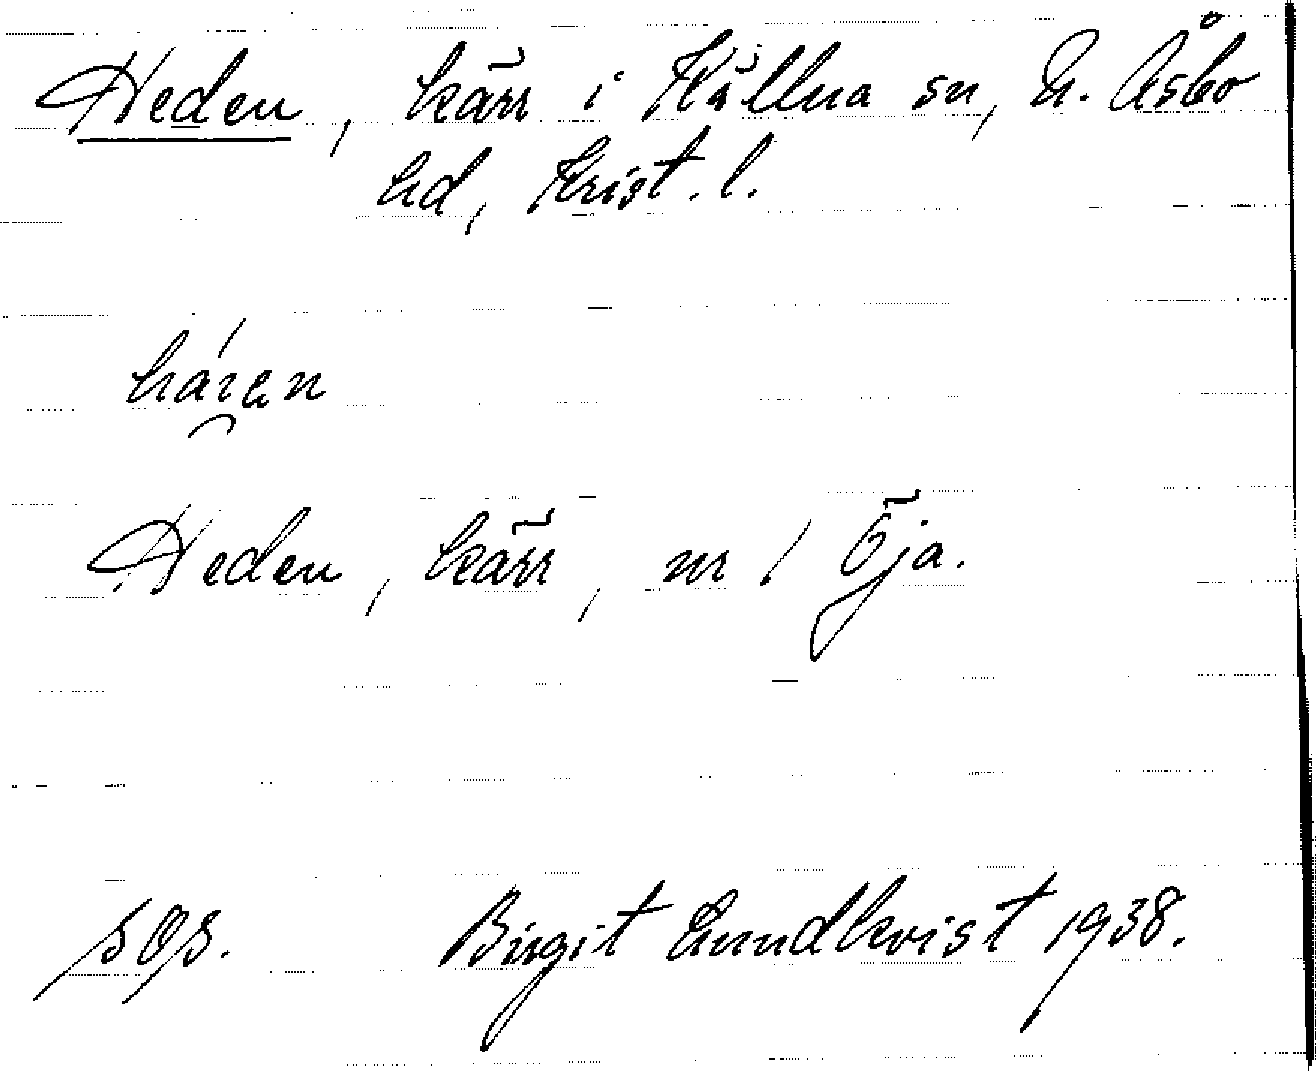 Heden, kärr i Källna sn, N. Åsbo
hd, Krist. l.
Heden, kärr, nr 1 Öja.
SOS. Birgit Lundkvist 1938.